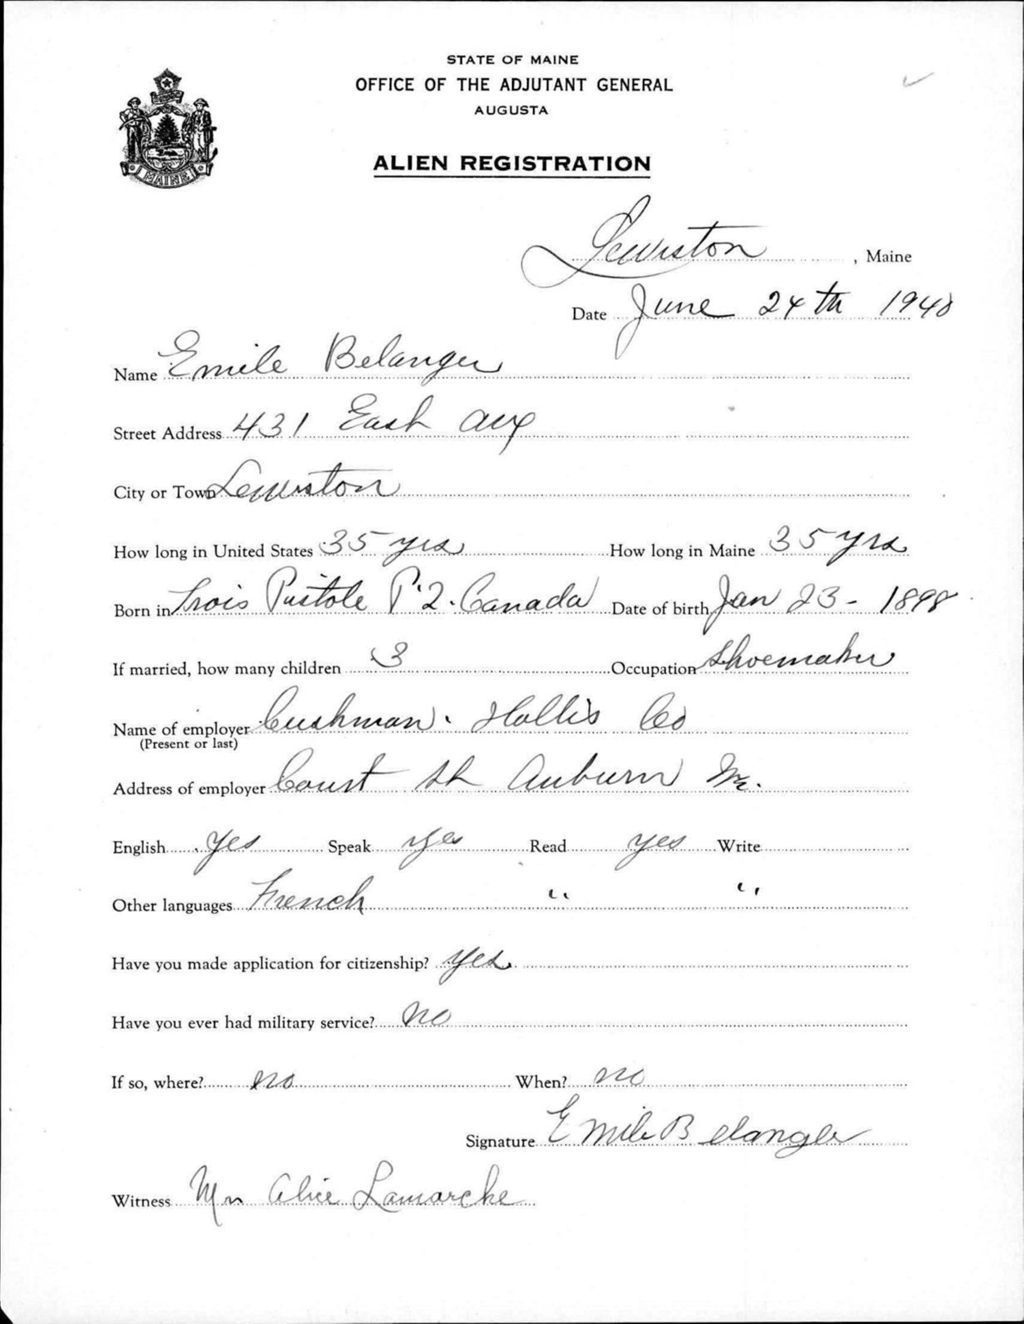 STATE OF MAINE
OFFICE OF THE ADJUTANT GENERAL
AUGUSTA
ALIEN REGISTRATION
MAINE
Lewiston, Maine
Date June 24th 1940
Name Emile Belanger
Street Address 431 East Ave
City or Town Lewiston
How long in United States 35 yrs How long in Maine 35 yrs
Born in Trois Pistole P.Q. Canada Date of birth Jan 23 - 1898
If married, how many children 3 Occupation Shoemaker
Name of employer Cushman. Hollis Co
(Present or last)
Address of employer Court St Auburn Me.
English Yes Speak yes Read yes Write
Other languages French " "
Have you made application for citizenship? Yes.
Have you ever had military service? No
If so, where? no When? no
Signature Emile Belanger
Witness Mrs Alice Lamarche